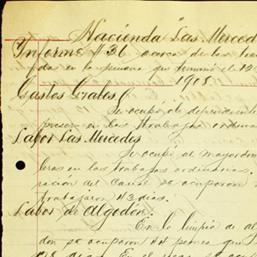 Hacienda "Las Merced
Informe #26 acerca de los tra
en la semana que terminó el 12
1905.
Gastos Grales
Se ocupó de dependiente
en los trabajos ordina
Labor Las Mercedes
Se ocupó al mayordom
en los trabajos ordinarios.
ración del Canal se ocuparon
trabajaron 43 dias.
Labor de Algodón.
En la limpia de al
don se ocuparon 44 peones que
dias. En el